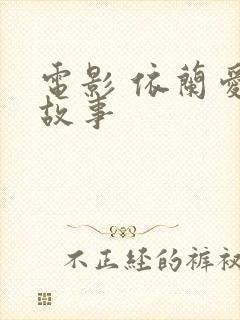 電影 依蘭愛
故事
不正經的褲衩